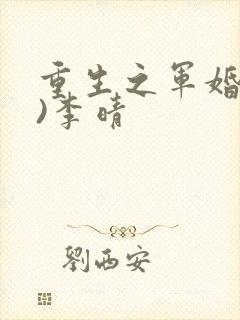 重生之军婚
)李晴
劉西安